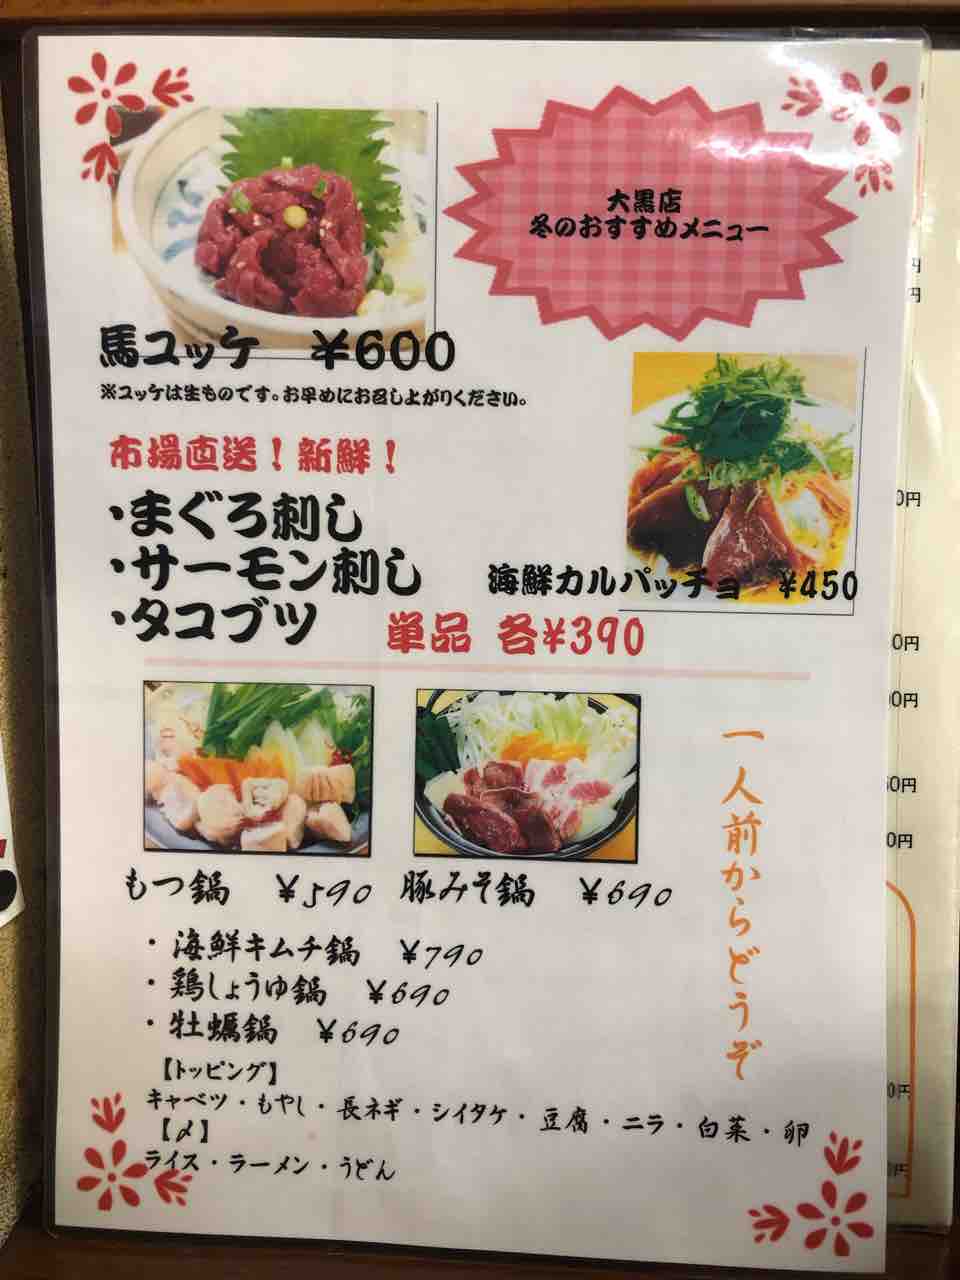 大黒店
冬のおすすめメニュー
馬ユッケ ¥600
※ユッケは生ものです。お早めにお召し上がりください。
市場直送！新鮮！
・まぐろ刺し
・サーモン刺し
・タコブツ
海鮮カルパッチョ ¥450
単品 各¥390
もつ鍋 ¥590
豚みそ鍋 ¥690
・海鮮キムチ鍋 ¥790
・鶏しょうゆ鍋 ¥690
・牡蠣鍋 ¥690
一人前からどうぞ
【トッピング】
キャベツ・もやし・長ネギ・シイタケ・豆腐・ニラ・白菜・卵
【〆】
ライス・ラーメン・うどん
円
円
0円
0円
0円
0円
0円
0円
円